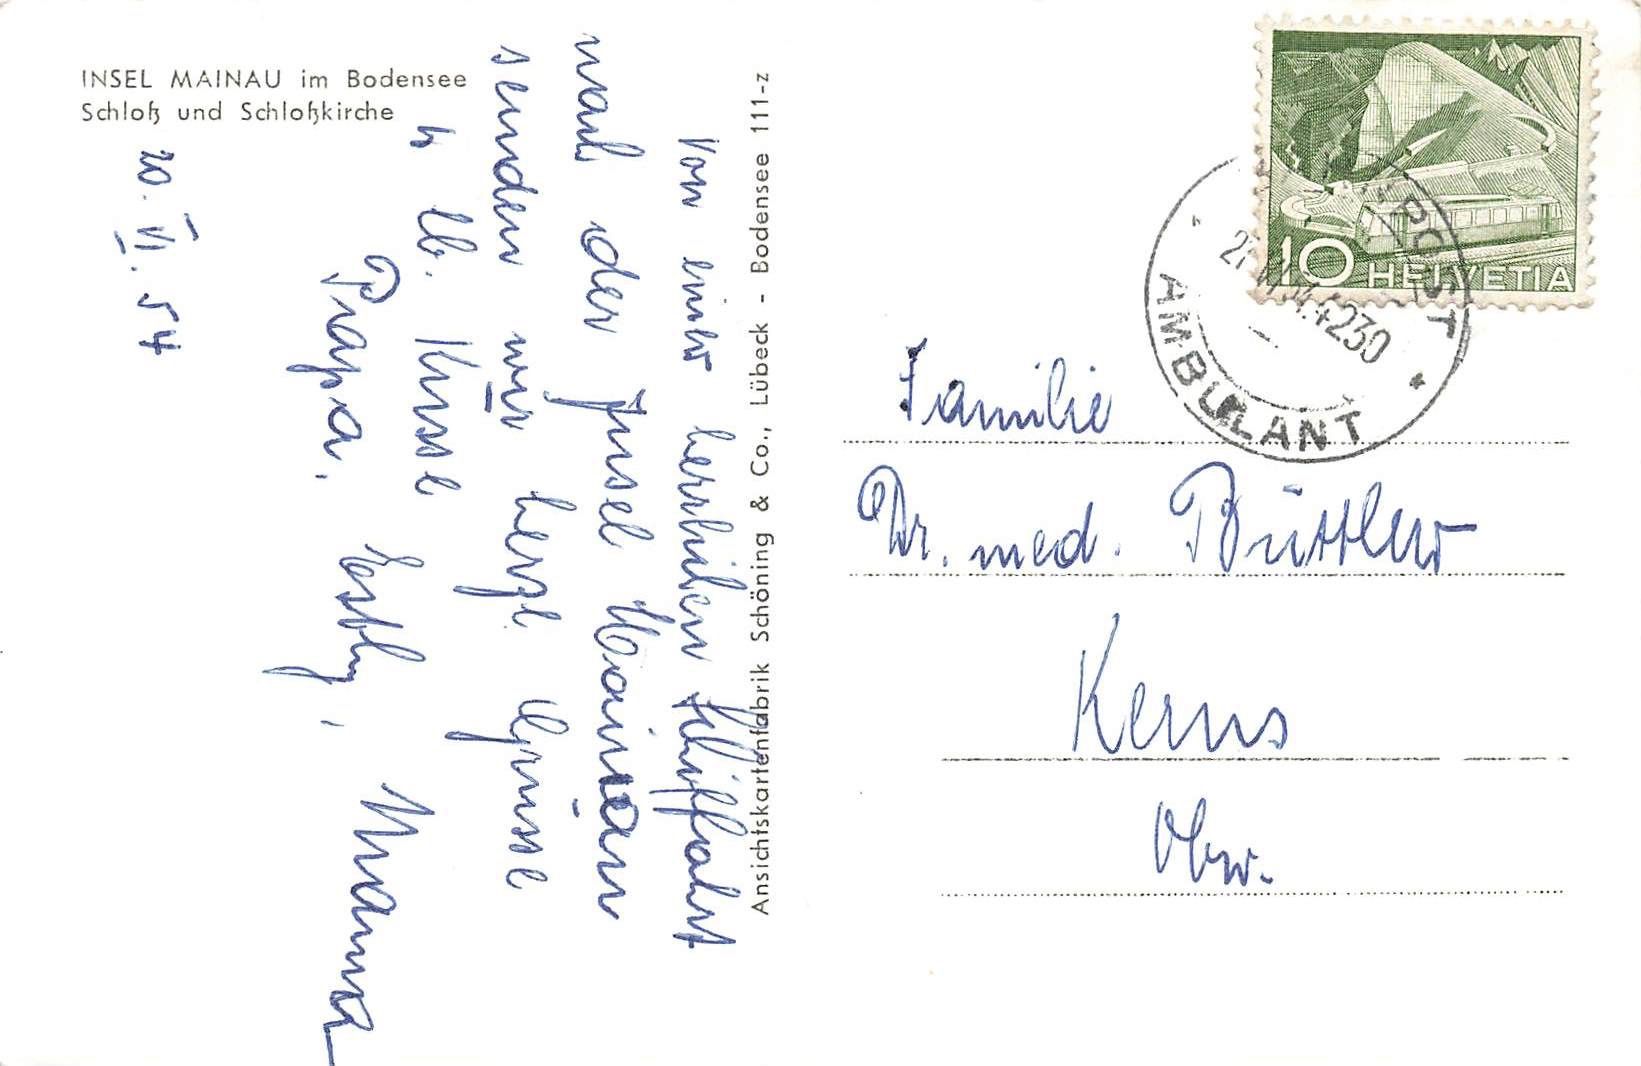 INSEL MAINAU im Bodensee
Schloß und Schloßkirche
Von einer herrlichen Schiffahrt
nach der Insel Mainau
senden wir herzl. Grüsse
u lb. Küsse
Papa, Mamma
20. VI. 54
Ansichtskartenfabrik Schöning & Co., Lübeck - Bodensee 111-z
10 HELVETIA
AMBULANT
4230
Familie
Dr. med. Büttler
Kerns
Obw.